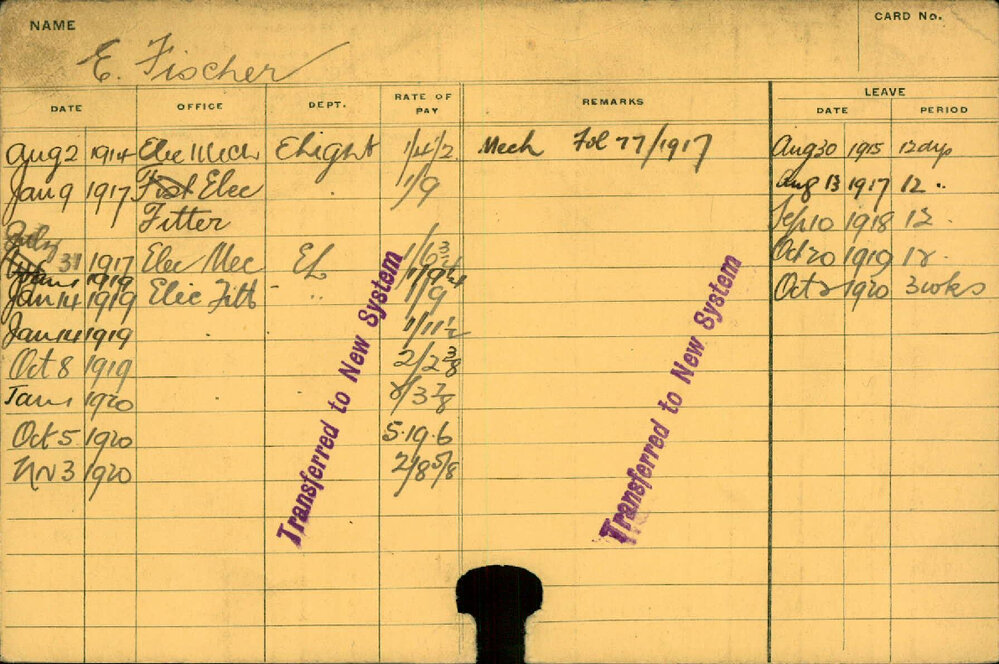 NAME
CARD No.
E. Fischer
DATE OFFICE DEPT. RATE OF PAY REMARKS LEAVE
DATE PERIOD
Aug 2 1914 Elec Mech Elight 1/4/2 Mech Fol 77/1917 Aug 30 1915 12 dys
Jan 9 1917 Elec 1/9 Aug 13 1917 12 "
Fitter Sep 10 1918 12 "
July 31 1917 Elec Mec EL 1/6 3/4 Oct 20 1919 12 "
Jan 1 1919
Jan 14 1919 Elec Fitt " 1/9 Oct 2 1920 3 wks
Jan 14 1919 1/11 1/2
Oct 8 1919 2/2 3/8
Jan 1 1920 2/3 7/8
Oct 5 1920 5.19.6
Nov 3 1920 2/8 5/8
Transferred to New System
Transferred to New System